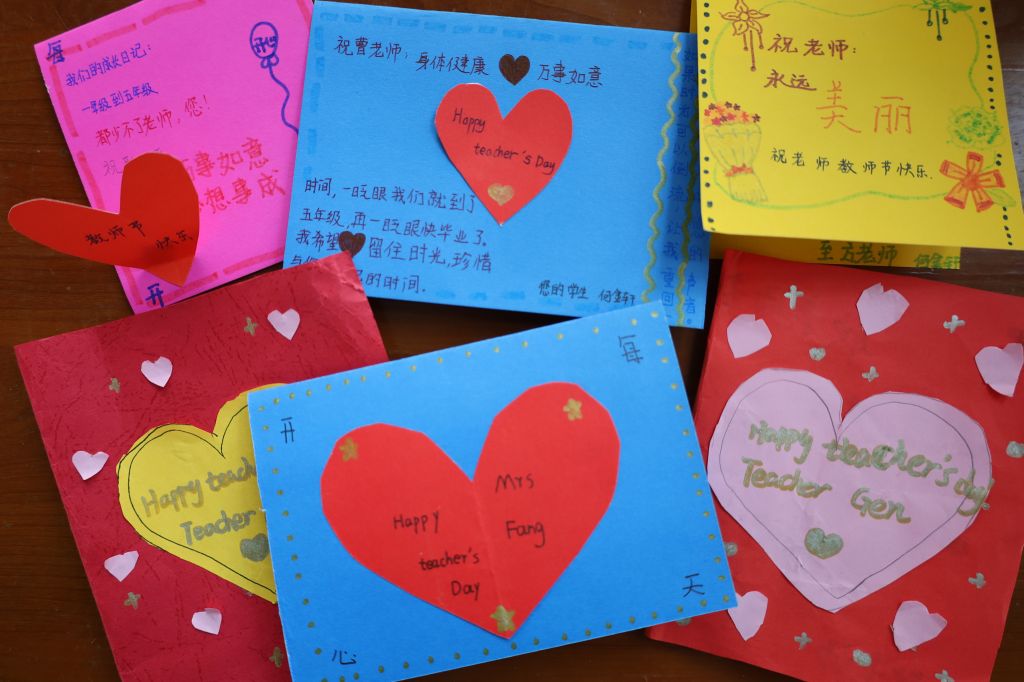 每
我们的成长日记:
一年级到五年级
都少不了老师，您!
祝
万事如意
想事成
教师节
快乐
开
祝曹老师: 身体健康 万事如意
Happy
teacher's Day
时间，一眨眼我们就到了
五年级,再一眨眼快毕业了.
我希望 留住时光,珍惜
的时间.
您的学生
祝老师:
永远
美丽
祝老师教师节快乐.
至方老师
Happy teach
Teacher
每
开
心
天
Happy
teacher's
Day
Mrs
Fang
Happy teacher's day
Teacher Gen